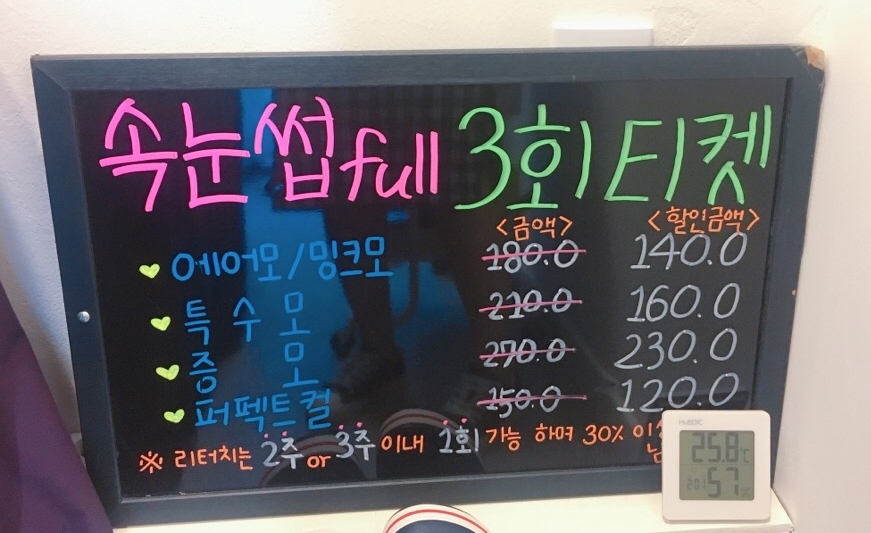 속눈썹full 3회 티켓
<금액> <할인금액>
에어모/밍크모 180.0 140.0
특수모 210.0 160.0
증모 270.0 230.0
퍼펙트컬 150.0 120.0
※ 리터치는 2주 or 3주 이내 1회 가능 하며 30%
25.8℃
57%